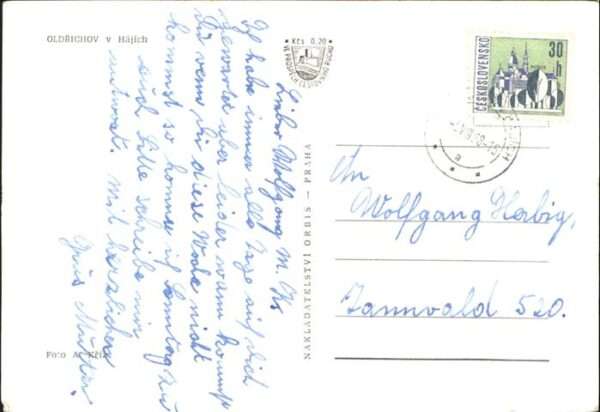 OLDŘICHOV v Hájích
Kčs 0.20
ČESKOSLOVENSKO
30
h
Lieber Wolfgang M. Ks
Ich habe immer alle Tage auf dich
gewartet aber leider wann kommst
Du wenn du diese Woche nicht
kommst so komme ich Samstag zu
und bitte schreibe mir
antwort. Mit herzlichen
Gruss Mutter.
NAKLADATELSTVÍ ORBIS — PRAHA
An
Wolfgang Herbig,
Tannwald 520.
Foto A.